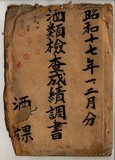 昭和十七年一二月分
酒類檢査成績調書
酒課